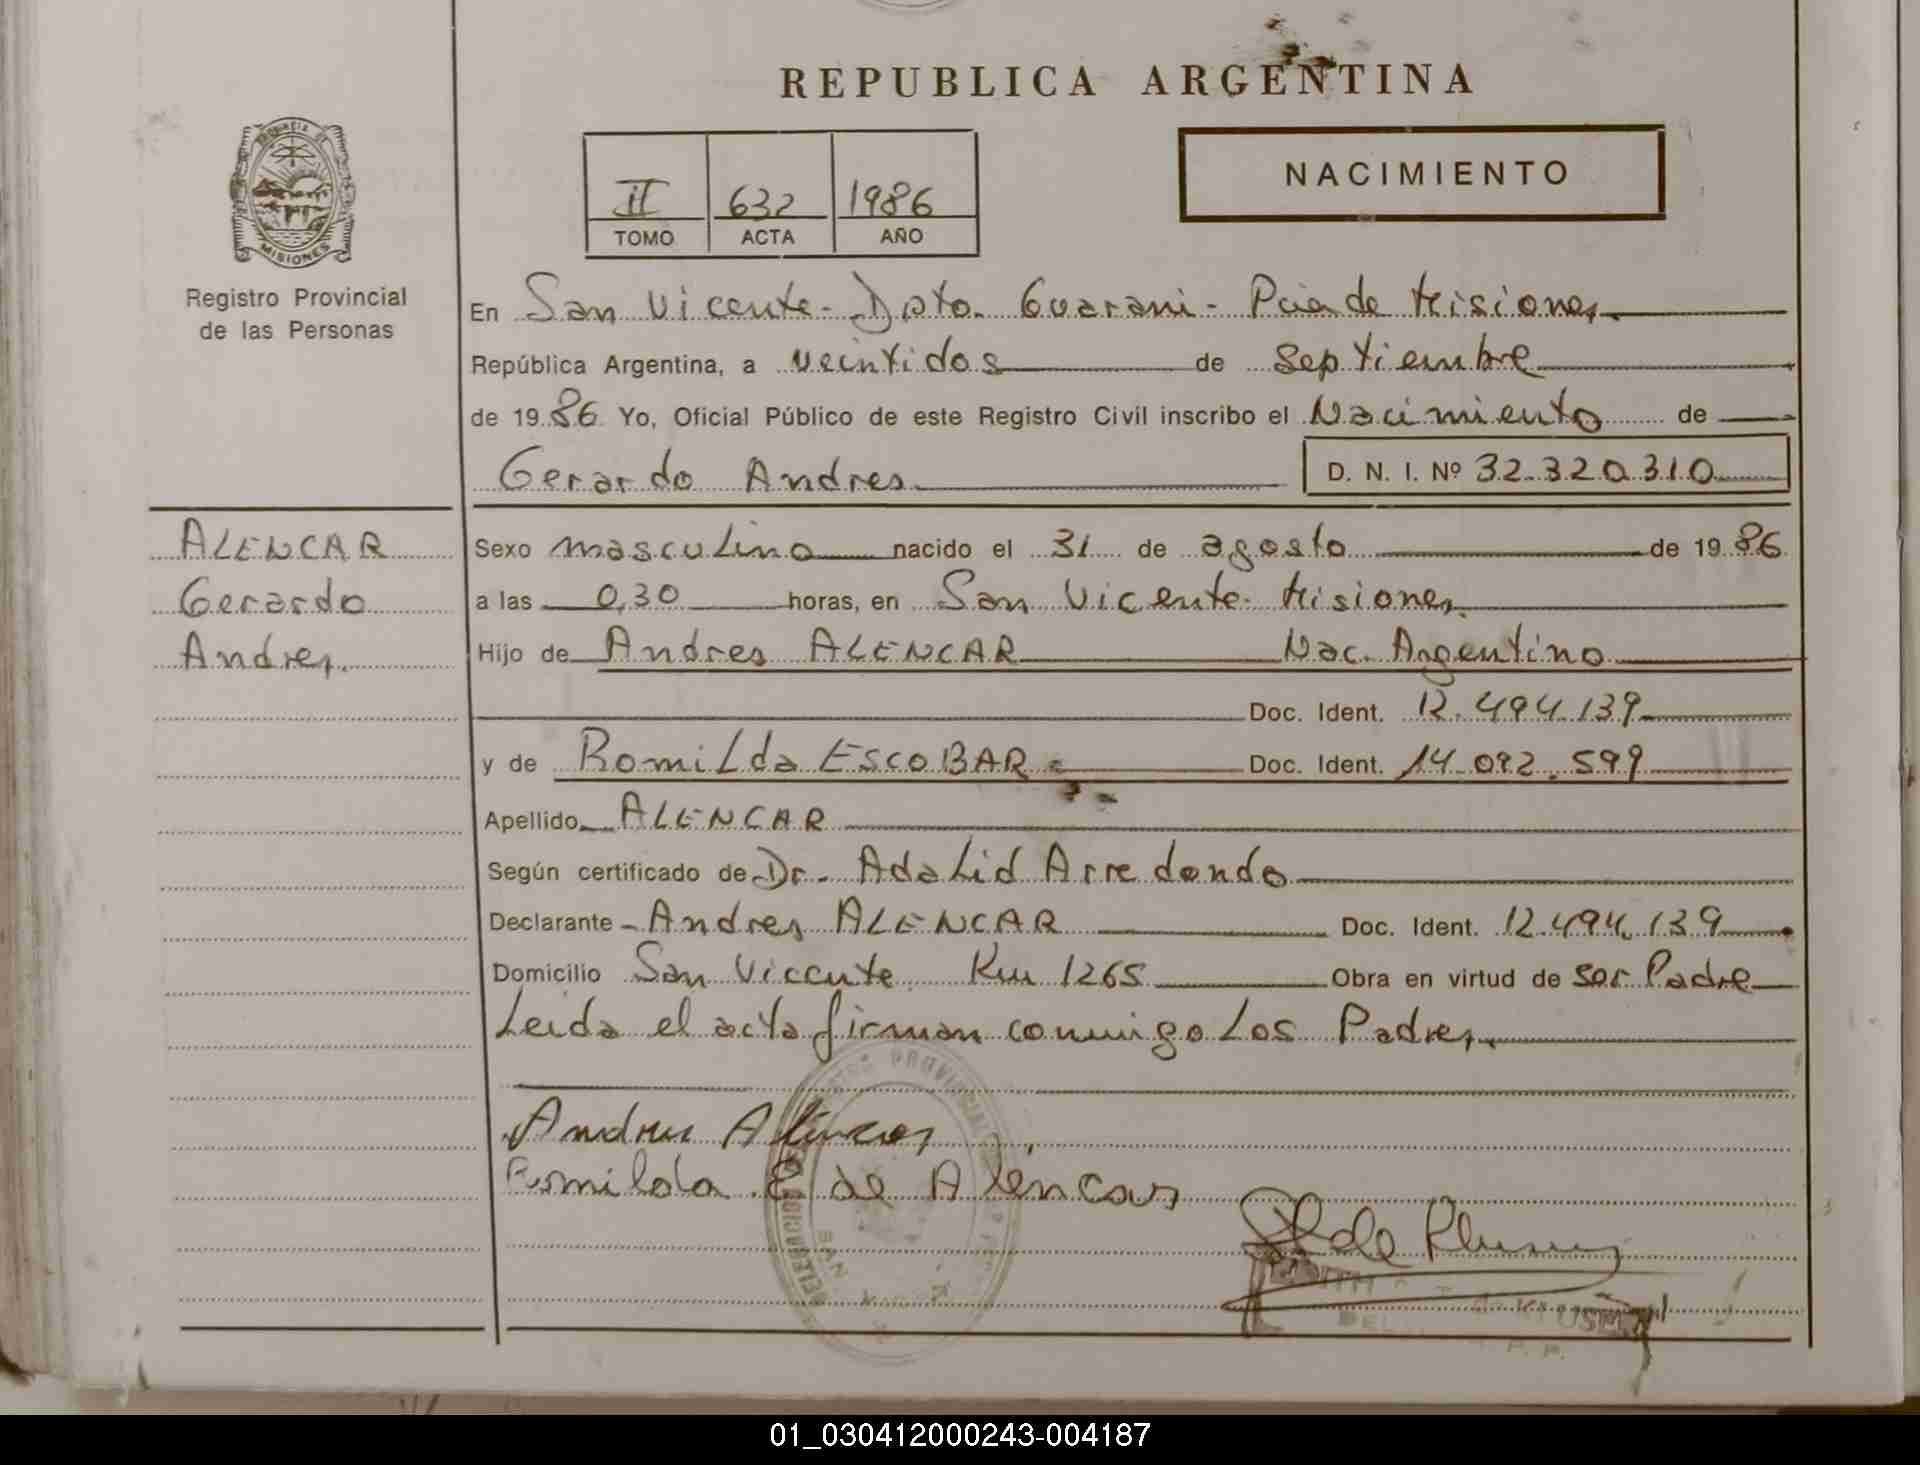 REPUBLICA ARGENTINA
PROVINCIA DE
MISIONES
Registro Provincial
de las Personas
II 632 1986
TOMO ACTA AÑO
NACIMIENTO
En San Vicente - Dpto. Guarani - Pcia de Misiones
República Argentina, a veintidos de septiembre
de 1986 Yo, Oficial Público de este Registro Civil inscribo el Nacimiento de
Gerardo Andres D. N. I. Nº 32.320.310
ALENCAR
Gerardo
Andres.
Sexo masculino nacido el 31 de agosto de 1986
a las 0,30 horas, en San Vicente - Misiones.
Hijo de Andres ALENCAR Nac. Argentino
Doc. Ident. 12.494.139
y de Romilda ESCOBAR = Doc. Ident. 14.092.599
Apellido ALENCAR
Según certificado de Dr. Adalid Arredondo
Declarante - Andres ALENCAR Doc. Ident. 12.494.139
Domicilio San Vicente Km 1265 Obra en virtud de ser Padre
Leida el acta firman conmigo los Padres.
Andres Alencar
Romilda E de Alencar
01_030412000243-004187